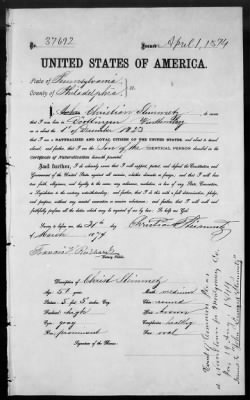 No. 37692 Issued April 1, 1874
UNITED STATES OF AMERICA.
State of Pennsylvania
County of Philadelphia } ss.
I, John Christian Steinmetz, do swear
that I was born in
on or about the 1st of December 1823
that I am a NATURALIZED AND LOYAL CITIZEN OF THE UNITED STATES, and about to travel
abroad; and further, that I am the IDENTICAL PERSON described in the
CERTIFICATE OF NATURALIZATION herewith presented.
And further, I do solemnly swear that I will support, protect, and defend the Constitution and
Government of the United States against all enemies, whether domestic or foreign; and that I will bear
true faith, allegiance, and loyalty to the same, any ordinance, resolution, or law of any State, Convention,
or Legislature to the contrary notwithstanding; and further, that I do this with a full determination, pledge,
and purpose, without any mental reservation or evasion whatsoever; and further, that I will well and
faithfully perform all the duties which may be required of me by law: So help me God.
Sworn to before me, this 31st day
of March 1874
Christian Steinmetz
Notary Public.
Description of Christ Steinmetz
Age: 51 yrs. Mouth: medium
Stature: 5 f. 5 inches, Eng. Chin: round
Forehead: high Hair: brown
Eyes: gray Complexion: healthy
Nose: prominent Face: oval
Signature of the Bearer: